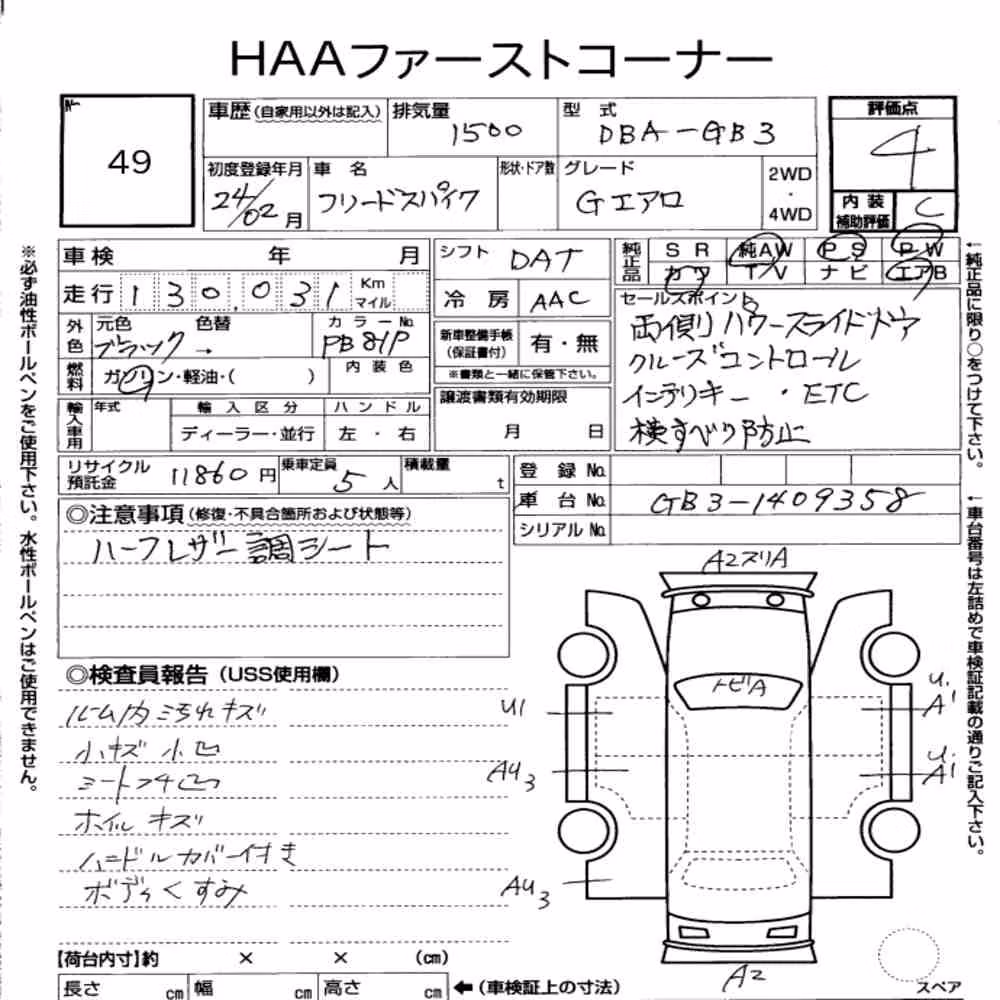 HAAファーストコーナー
No.
49
車歴(自家用以外は記入)
排気量
1500
型 式
DBA-GB3
評価点
4
初度登録年月
24/02月
車名
フリードスパイク
形状・ドア数
グレード
Gエアロ
2WD
・
4WD
内装
補助評価
C
※必ず油性ボールペンをご使用下さい。水性ボールペンはご使用できません。
車検 年 月
シフト DAT
純正品
SR 純AW PS PW
カワ TV ナビ エアB
走行 130,031 Km マイル
冷房 AAC
セールスポイント
両側パワースライドドア
クルーズコントロール
インテリキー ・ETC
横すべり防止
外色
元色 色替
ブラック →
カラーNo.
PB81P
新車整備手帳
(保証書付)
有・無
※書類と一緒に保管下さい。
燃料
ガソリン・軽油・( )
内装色
輸入車用
年式
輸入区分
ディーラー・並行
ハンドル
左・右
譲渡書類有効期限
月 日
←純正品に限り○をつけて下さい。
リサイクル
預託金
11860円
乗車定員
5人
積載量
t
登録No.
車台No. GB3-1409358
シリアルNo.
←車台番号は左詰めで車検証記載の通りご記入下さい。
◎注意事項(修復・不具合箇所および状態等)
ハーフレザー調シート
◎検査員報告(USS使用欄)
ルーム内汚れキズ
小キズ小凹
シートコゲ凹
ホイルキズ
ハンドルカバー付き
ボディくすみ
A2スリA
トビA
U1
U.
A1
AU3
U.
A1
AU3
A2
スペア
【荷台内寸】約 × × (cm)
長さ cm 幅 cm 高さ cm ←(車検証上の寸法)